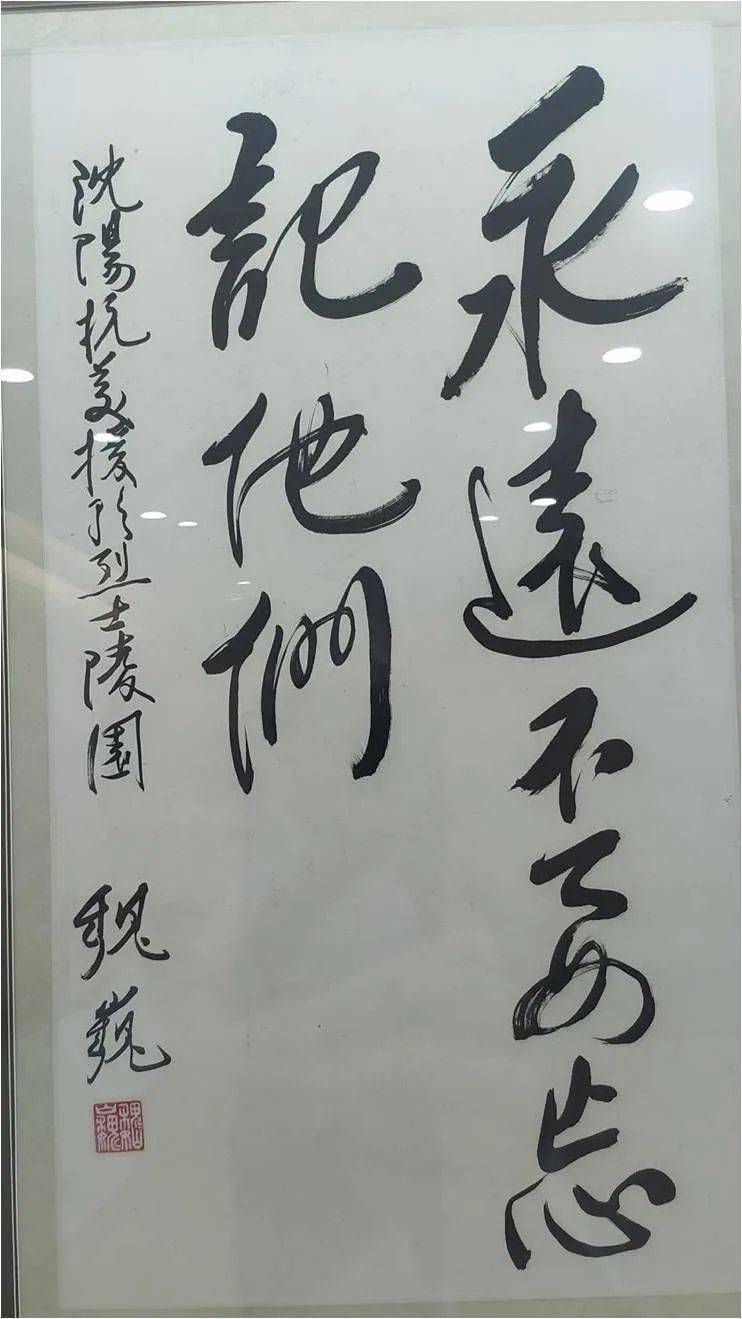 永遠不要忘
記他們
沈陽抗美援朝烈士陵園
魏巍
魏巍